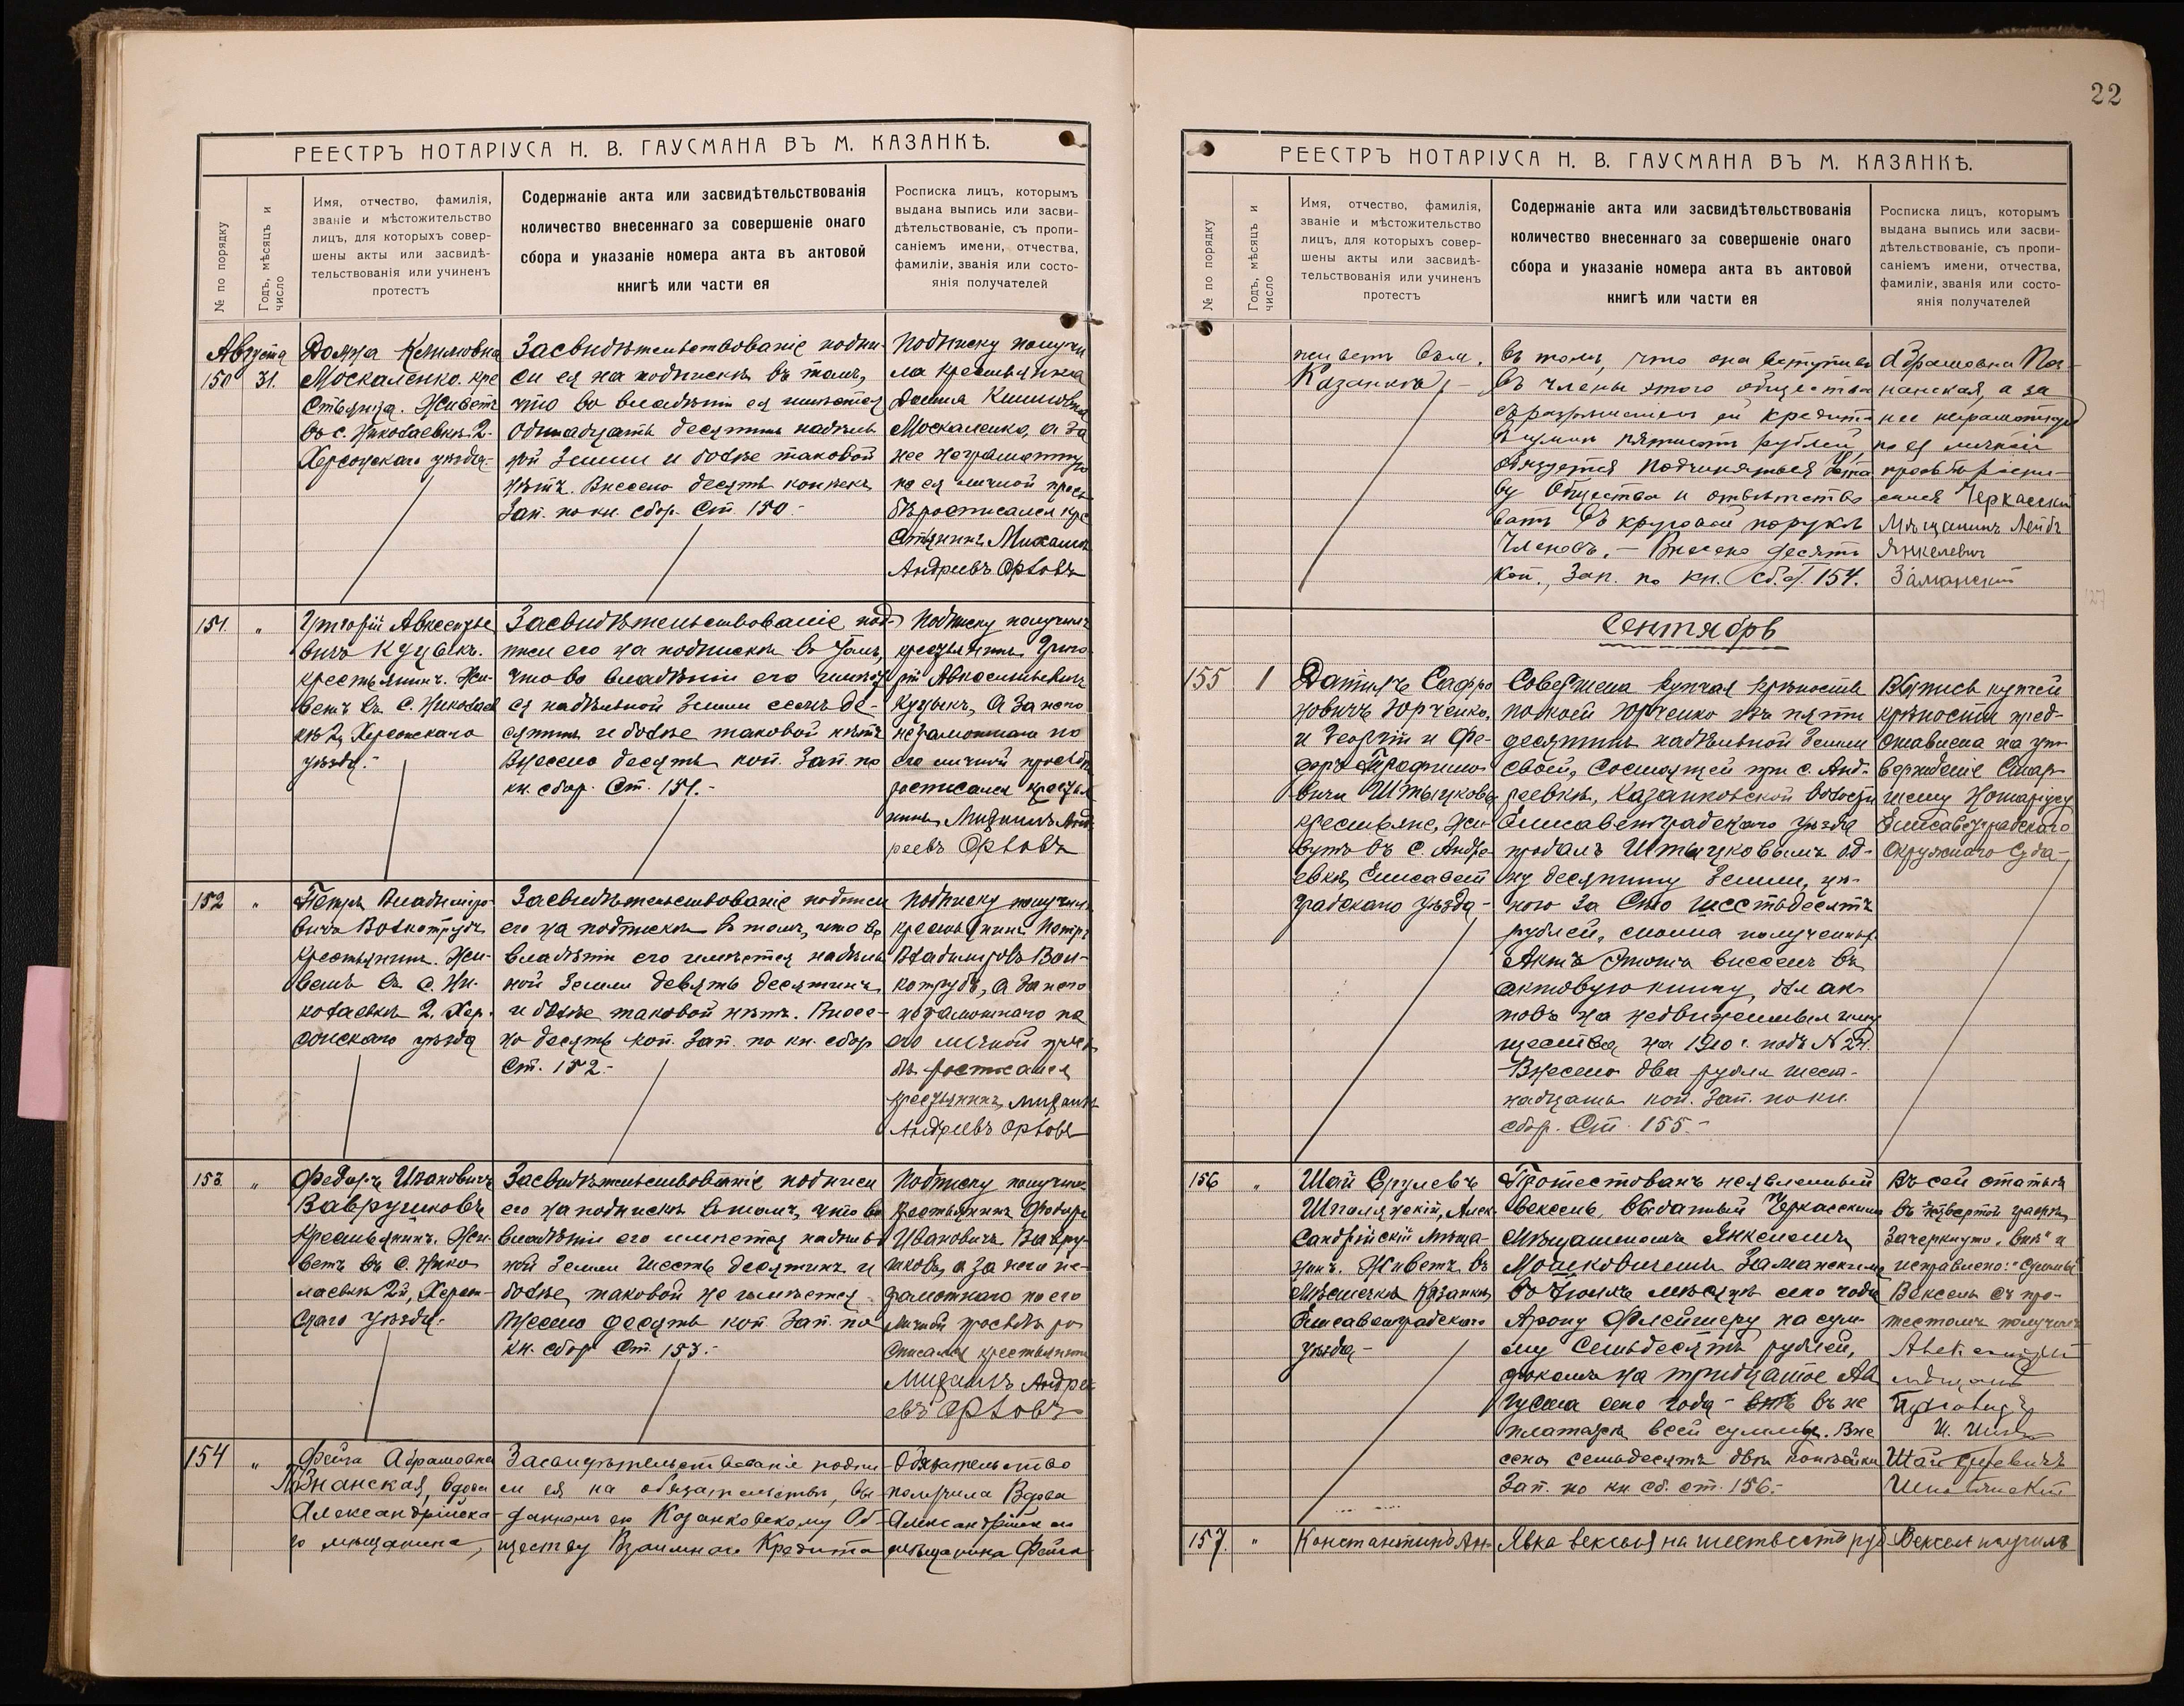 РЕЕСТРЪ НОТАРІУСА Н. В. ГАУСМАНА ВЪ М. КАЗАНКѢ.
№ по порядку
Годъ, мѣсяцъ и
число
Имя, отчество, фамилія,
званіе и мѣстожительство
лицъ, для которыхъ совер-
шены акты или засвидѣ-
тельствованія или учиненъ
протестъ
Содержаніе акта или засвидѣтельствованія
количество внесеннаго за совершеніе онаго
сбора и указаніе номера акта въ актовой
книгѣ или части ея
Росписка лицъ, которымъ
выдана выпись или засви-
дѣтельствованіе, съ пропи-
саніемъ имени, отчества,
фамиліи, званія или состо-
янія получателей
Августа
150 31.
Москаленко. кре
стьянка. Живетъ
въ с. Николаевкѣ 2.
Херсонскаго уѣзда.
Засвидѣтельствованіе подпи-
си ея на подпискѣ въ томъ,
что во владѣніи ея имѣется
одинадцать десятинъ надѣль
ной земли и болѣе таковой
нѣтъ. Внесено десять копѣекъ
Зап. по кн. сбор. Ст. 150.-
Подписку получи
ла крестьянка
Москаленко, а за
нее неграмотную
по ея личной прось
бѣ росписался кре
стьянинъ Михаилъ
Андреевъ Орловъ
151. "
Григорій Авксентье
вичъ Куцыкъ.
крестьянинъ. Жи-
ветъ въ с. Николаев
кѣ 2, Херсонскаго
уѣзда.-
Засвидѣтельствованіе под-
писи его на подпискѣ въ томъ,
что во владѣніи его имѣет
ся надѣльной земли семь де-
сятинъ и болѣе таковой нѣтъ
Внесено десять коп. Зап. по
кн. сбор. Ст. 151.-
Подписку получилъ
крестьянинъ Григо
рій Авксентьевичъ
Куцыкъ, а за него
неграмотнаго по
его личной просьбѣ
росписался крестья
нинъ Михаилъ Анд
реевъ Орловъ
152 "
Петръ Владиміро
вичъ Волкотрубъ
крестьянинъ. Жи-
ветъ въ с. Ни-
колаевкѣ 2. Хер-
сонскаго уѣзда
Засвидѣтельствованіе подписи
его на подпискѣ въ томъ, что во
владѣніи его имѣется надѣль
ной земли девять десятинъ
и болѣе таковой нѣтъ. Внесе-
но десять коп. Зап. по кн. сбор
Ст. 152.-
Подписку получилъ
крестьянинъ Петръ
Владиміровъ Вол-
котрубъ, а за него
неграмотнаго по
его личной прось
бѣ росписался
крестьянинъ Михаилъ
Андреевъ Орловъ
153 "
Федоръ Ивановичъ
Ваврушковъ
крестьянинъ. Жи-
ветъ въ с. Нико
лаевкѣ 2й, Херсон-
скаго уѣзда.-
Засвидѣтельствованіе подписи
его на подпискѣ въ томъ, что во
владѣніи его имѣется надѣль-
ной земли шесть десятинъ и
болѣе, таковой не имѣется
Внесено десять коп. Зап. по
кн. сбор Ст. 153.-
Подписку получилъ
крестьянинъ Федоръ
Ивановичъ Вавру-
шковъ, а за него не-
грамотнаго по его
личной просьбѣ ро
списался крестьянинъ
Михаилъ Андре
евъ Орловъ
154 "
Фейга Абрамовна
Познанская, вдова
Александрійска-
го мѣщанина,
Засвидѣтельствованіе подпи
си ея на обязательствѣ, вы
данномъ ею Казанковскому Об-
ществу Взаимнаго Кредита
Обязательство
получила Вдова
Александрійск аго
мѣщанина Фейга
22
РЕЕСТРЪ НОТАРІУСА Н. В. ГАУСМАНА ВЪ М. КАЗАНКѢ.
№ по порядку
Годъ, мѣсяцъ и
число
Имя, отчество, фамилія,
званіе и мѣстожительство
лицъ, для которыхъ совер-
шены акты или засвидѣ-
тельствованія или учиненъ
протестъ
Содержаніе акта или засвидѣтельствованія
количество внесеннаго за совершеніе онаго
сбора и указаніе номера акта въ актовой
книгѣ или части ея
Росписка лицъ, которымъ
выдана выпись или засви-
дѣтельствованіе, съ пропи-
саніемъ имени, отчества,
фамиліи, званія или состо-
янія получателей
живетъ въ м.
Казанкѣ.-
въ томъ, что она вступивъ
въ члены этого общества
съ разрѣшеніемъ ей кредита
въ суммѣ пятисотъ рублей,
обязуется подчиняться Уста
ву Общества и отвѣтство
вать въ круговой порукѣ
Членовъ.- Внесено десять
Коп., Зап. по кн. сб. ст 154.
Абрамовна Поз-
нанская, а за
нее неграмотную
по ея личной
просьбѣ роспи-
сался Черкасскій
Мѣщанинъ Лейбъ
Янкелевич
Заманский
127
Сентябрь
155 1
Данилъ Сафро
новичъ Юрченко,
и Георгій и Фе-
доръ Трофимо-
вичи Штыцковы
крестьяне, жи-
вутъ въ с. Андре-
евкѣ, Елисавет
градскаго уѣзда-
Совершена купчая крѣпость
по коей Юрченко изъ пяти
десятинъ надѣльной земли
своей, состоящей при с. Анд-
реевкѣ, Казанковской волости
Елисаветградскаго уѣзда
продалъ Штыцковымъ од-
ну десятину земли, цѣ-
ною за Сто шестьдесятъ
рублей, сполна полученныхъ
Актъ этотъ внесенъ въ
актовую книгу, для ак-
товъ на недвижимыя иму
щества на 1910 г. подъ N 24.
Внесено два рубля шест-
надцать коп. Зап. по кн.
сбор. Ст. 155.-
Выпись купчей
крѣпости пред-
ставлена на ут-
вержденіе Стар-
шему Нотаріусу
Елисаветградскаго
Окружнаго Суда-
156 "
Шполянскій, Алек
сандрійскій мѣща-
нинъ. Живетъ въ
мѣстечкѣ Казанкѣ,
Елисаветградскаго
уѣзда-
Протестованъ неявленный
вексель, выданный Черкасскимъ
мѣщаниномъ Янкелемъ
Мошковичемъ Заманскимъ
въ Іюнѣ мѣсяцѣ сего года
Арону Флейшеру на сум-
му семьдесятъ рублей,
срокомъ на тридцатое Ав
густа сего года- въ не
платежѣ всей суммы. Вне
сено семьдесятъ двѣ копѣйки
Зап. по кн сб. ст. 156.-
Въ сей статьѣ
въ четвертой графѣ
зачеркнуто
исправлено:
Вексель съ про-
тестомъ получилъ
Шполянскій
157. "
Константинъ Ан-
Явка векселя на шестьсотъ руб
Вексель получилъ